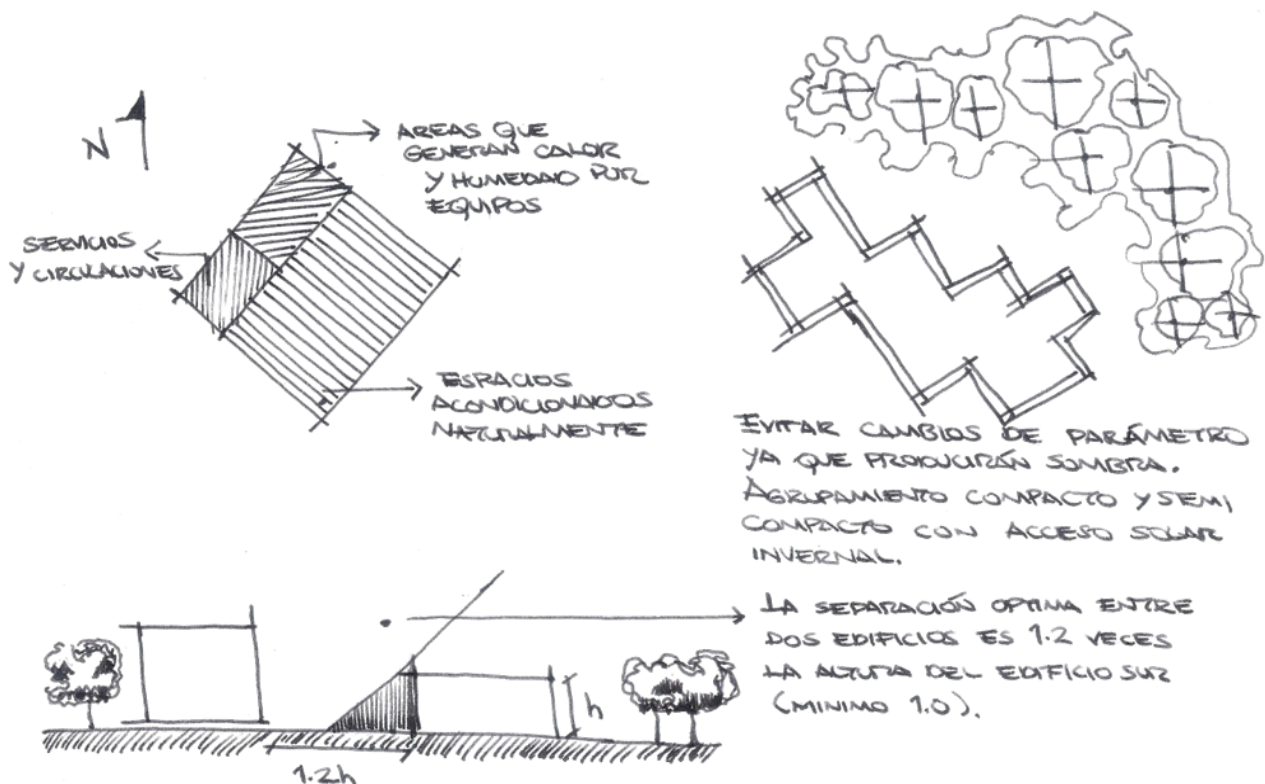 N
AREAS QUE
GENERAN CALOR
Y HUMEDAD POR
EQUIPOS
SERVICIOS
Y CIRCULACIONES
ESPACIOS
ACONDICIONADOS
NATURALMENTE
EVITAR CAMBIOS DE PARÁMETRO
YA QUE PRODUCIRÁN SOMBRA.
AGRUPAMIENTO COMPACTO Y SEMI
COMPACTO CON ACCESO SOLAR
INVERNAL.
LA SEPARACIÓN OPTIMA ENTRE
DOS EDIFICIOS ES 1.2 VECES
LA ALTURA DEL EDIFICIO SUR
(MINIMO 1.0).
h
1.2h